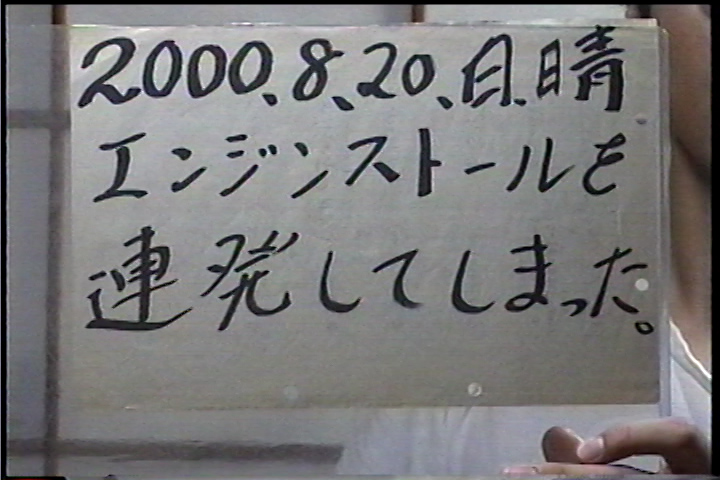 2000、8、20、日、晴
エンジンストールを
連発してしまった。